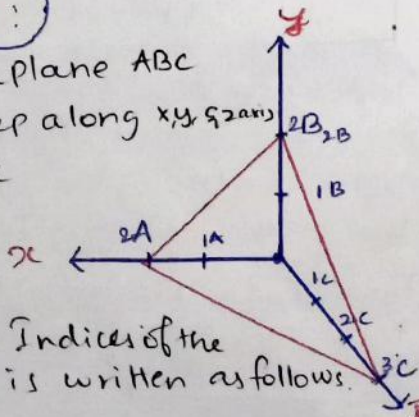 ?
y
plane ABC
ep along x,y, & z axis
2B 2B
1B
2A
1A
x
1C
2C
3C
Indices of the
is written as follows.